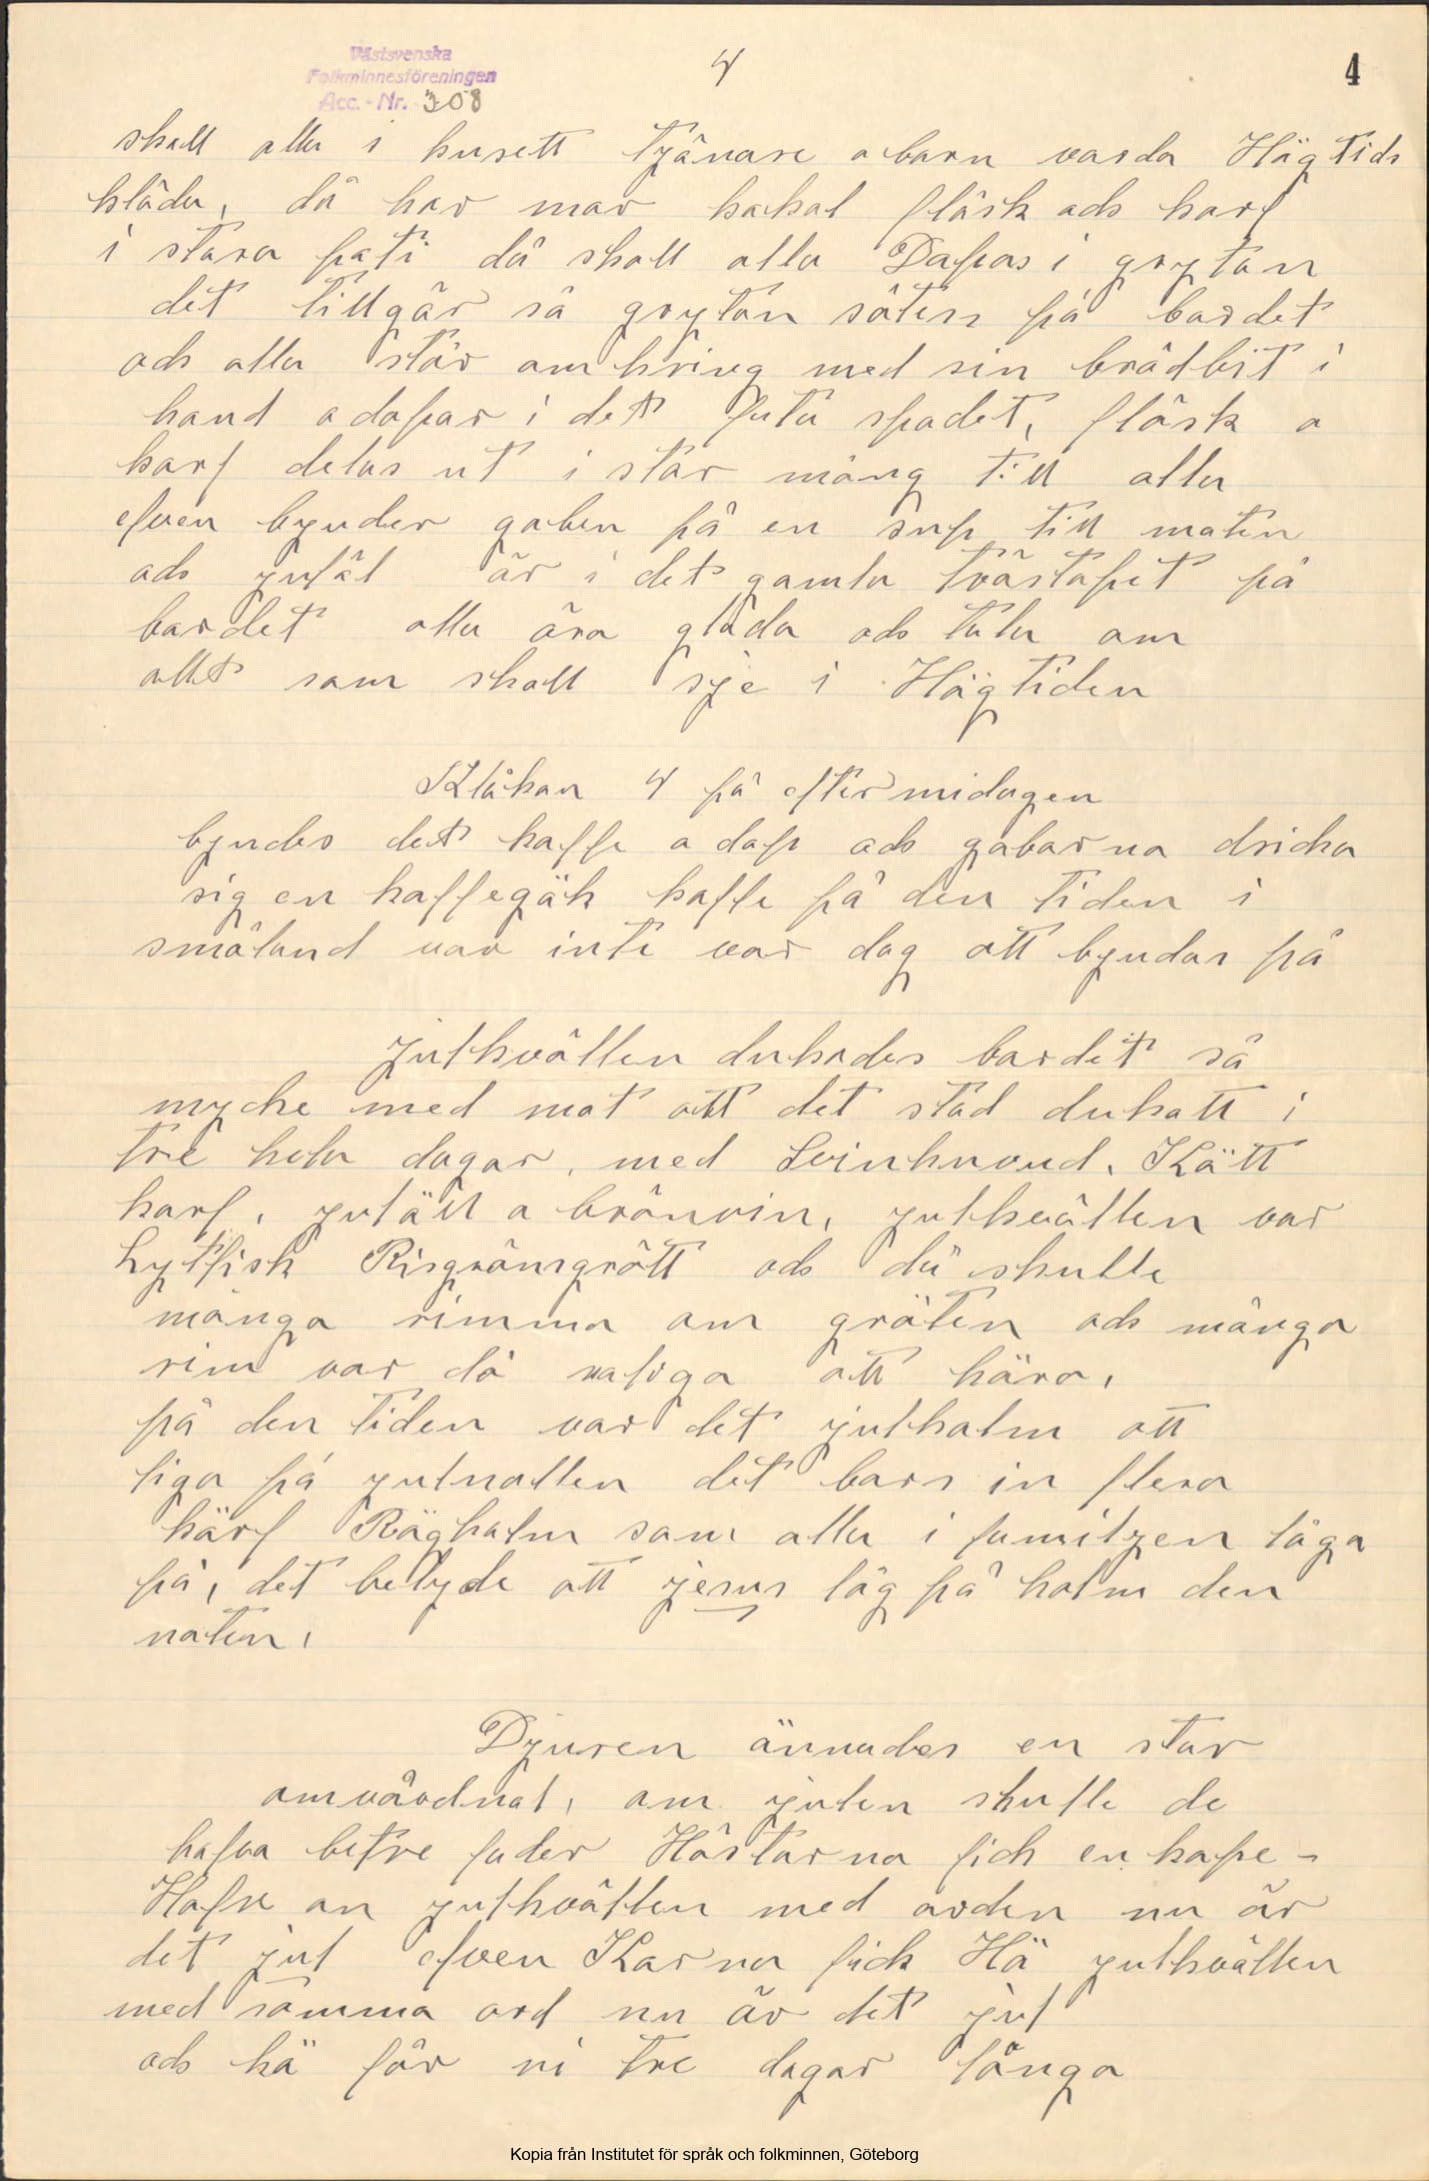 Västsvenska
Folkminnesföreningen
Acc. - Nr. 308
4
4
skall alla i husett tjänare o barn varda Högtids
kläda, då har mor kokat fläsk och korf
i stora pati då skall alla Dopas i grytan
det tillgår så grytan sätes på bordet
och alla står omkring med sin brödbit i
hand o dopar i det feta spadet, fläsk o
korf delas ut i stor mäng till alla
efven bjuder goben på en sup till maten
och julöl är i det gamla trästopet på
bordet alla äro glada och tala om
allt som skall sje i Högtiden
Klåkan 4 på eftermidagen
bjudes det kaffe o dop och gobarna dricka
sig en kaffegök kaffe på den tiden i
småland var inte var dag att bjudas på
julkvällen dukades bordet så
mycke med mat att det stod dukatt i
tre hela dagar, med Svinhuvud, Kött
korf, julöll o bränvin, julkvällen var
Lytfisk Risgrönsgrött och då skulle
många rimma om gröten och många
rim var då roliga att höra,
på den tiden var det julhalm att
liga på julnatten det bars in flera
kärf Röghalm som alla i familjen låga
på, det betyde att jesus låg på halm den
naten,
Djuren ännades en stor
omvårdnat, om julen skulle de
hafva betre foder Hästarna fick en kape-
Hafre on julkvällen med orden nu är
det jul efven Korna fick Hö julkvällen
med samma ord nu är det jul
och hö får ni tre dagar långa
Kopia från Institutet för språk och folkminnen, Göteborg